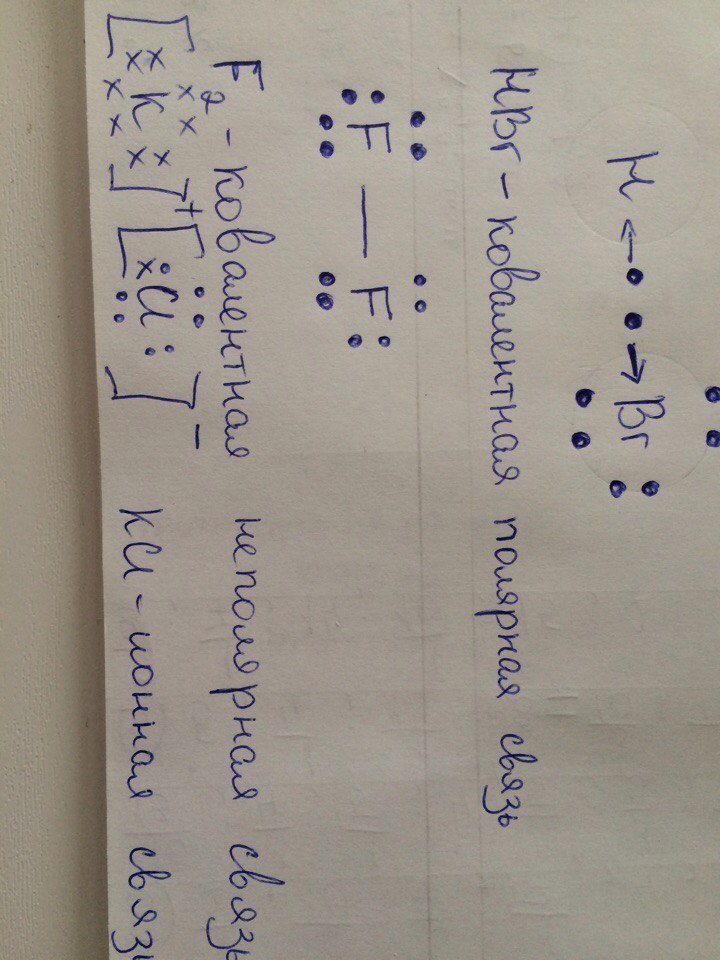 H ← • • → Br
HBr - ковалентная полярная связь
F — F
F₂ - ковалентная неполярная связь
[K]⁺ [Cl]⁻ KCl - ионная связь